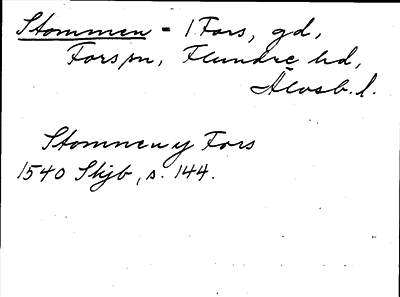 Stommen - 1 Fors, gd,
Fors sn, Flundre hd,
Älvsb. l.
Stomnen y Fors
1540 Skjb, s. 144.